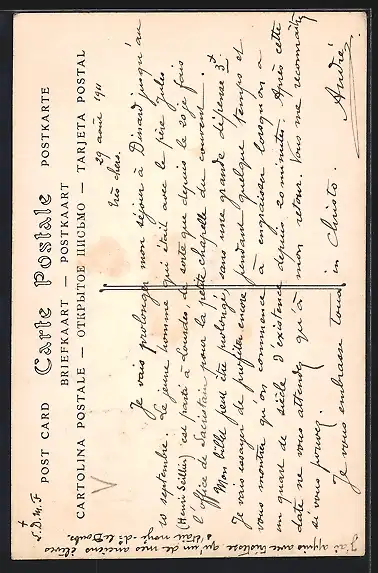 ✝
S.D.M.F
POST CARD Carte Postale POSTKARTE
BRIEFKAART — POSTKAART
CARTOLINA POSTALE — ОТКРЫТОЕ ПИСЬМО — TARJETA POSTAL
29 août 1911
Très chers.
Je vais prolonger mon séjour à Dinard jusqu'au
10 septembre. Le jeune homme qui était avec le père Jules
(Henri Seillier) est parti à Lourdes de sorte que depuis le 20 je fais
l'office de sacristain pour la petite chapelle du couvent.
Mon billet peut être prolongé, sans une grande dépense 3f
Je vais essayer de profiter encore pendant quelque temps et
vous montrer qu'on commence à engraisser lorsqu'on a
un quart de siècle d'existence depuis 20 minutes. Après cette
date ne vous attendez qu'à mon retour. Vous me reconnaîtrez
si vous pouvez.
Je vous embrasse tous in Christo.
André
J'ai appris avec tristesse qu'un de mes anciens élèves
s'était noyé dans le Doubs.